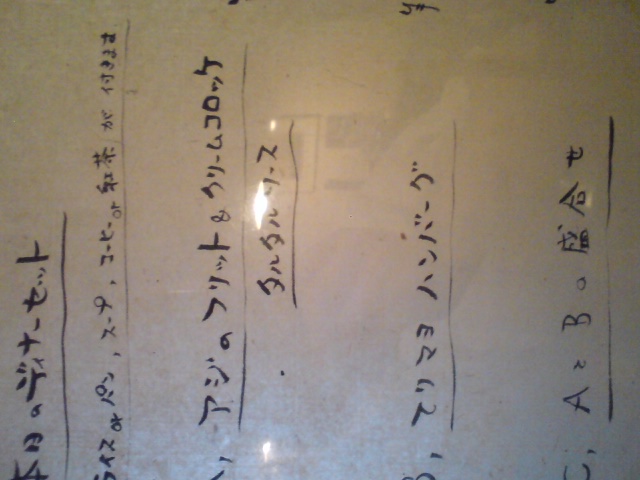 本日のディナーセット
ライス or パン, スープ, コーヒー or 紅茶 が 付きます
A, アジのフリット & クリームコロッケ
タルタルソース
B, テリマヨ ハンバーグ
C, AとBの盛合せ